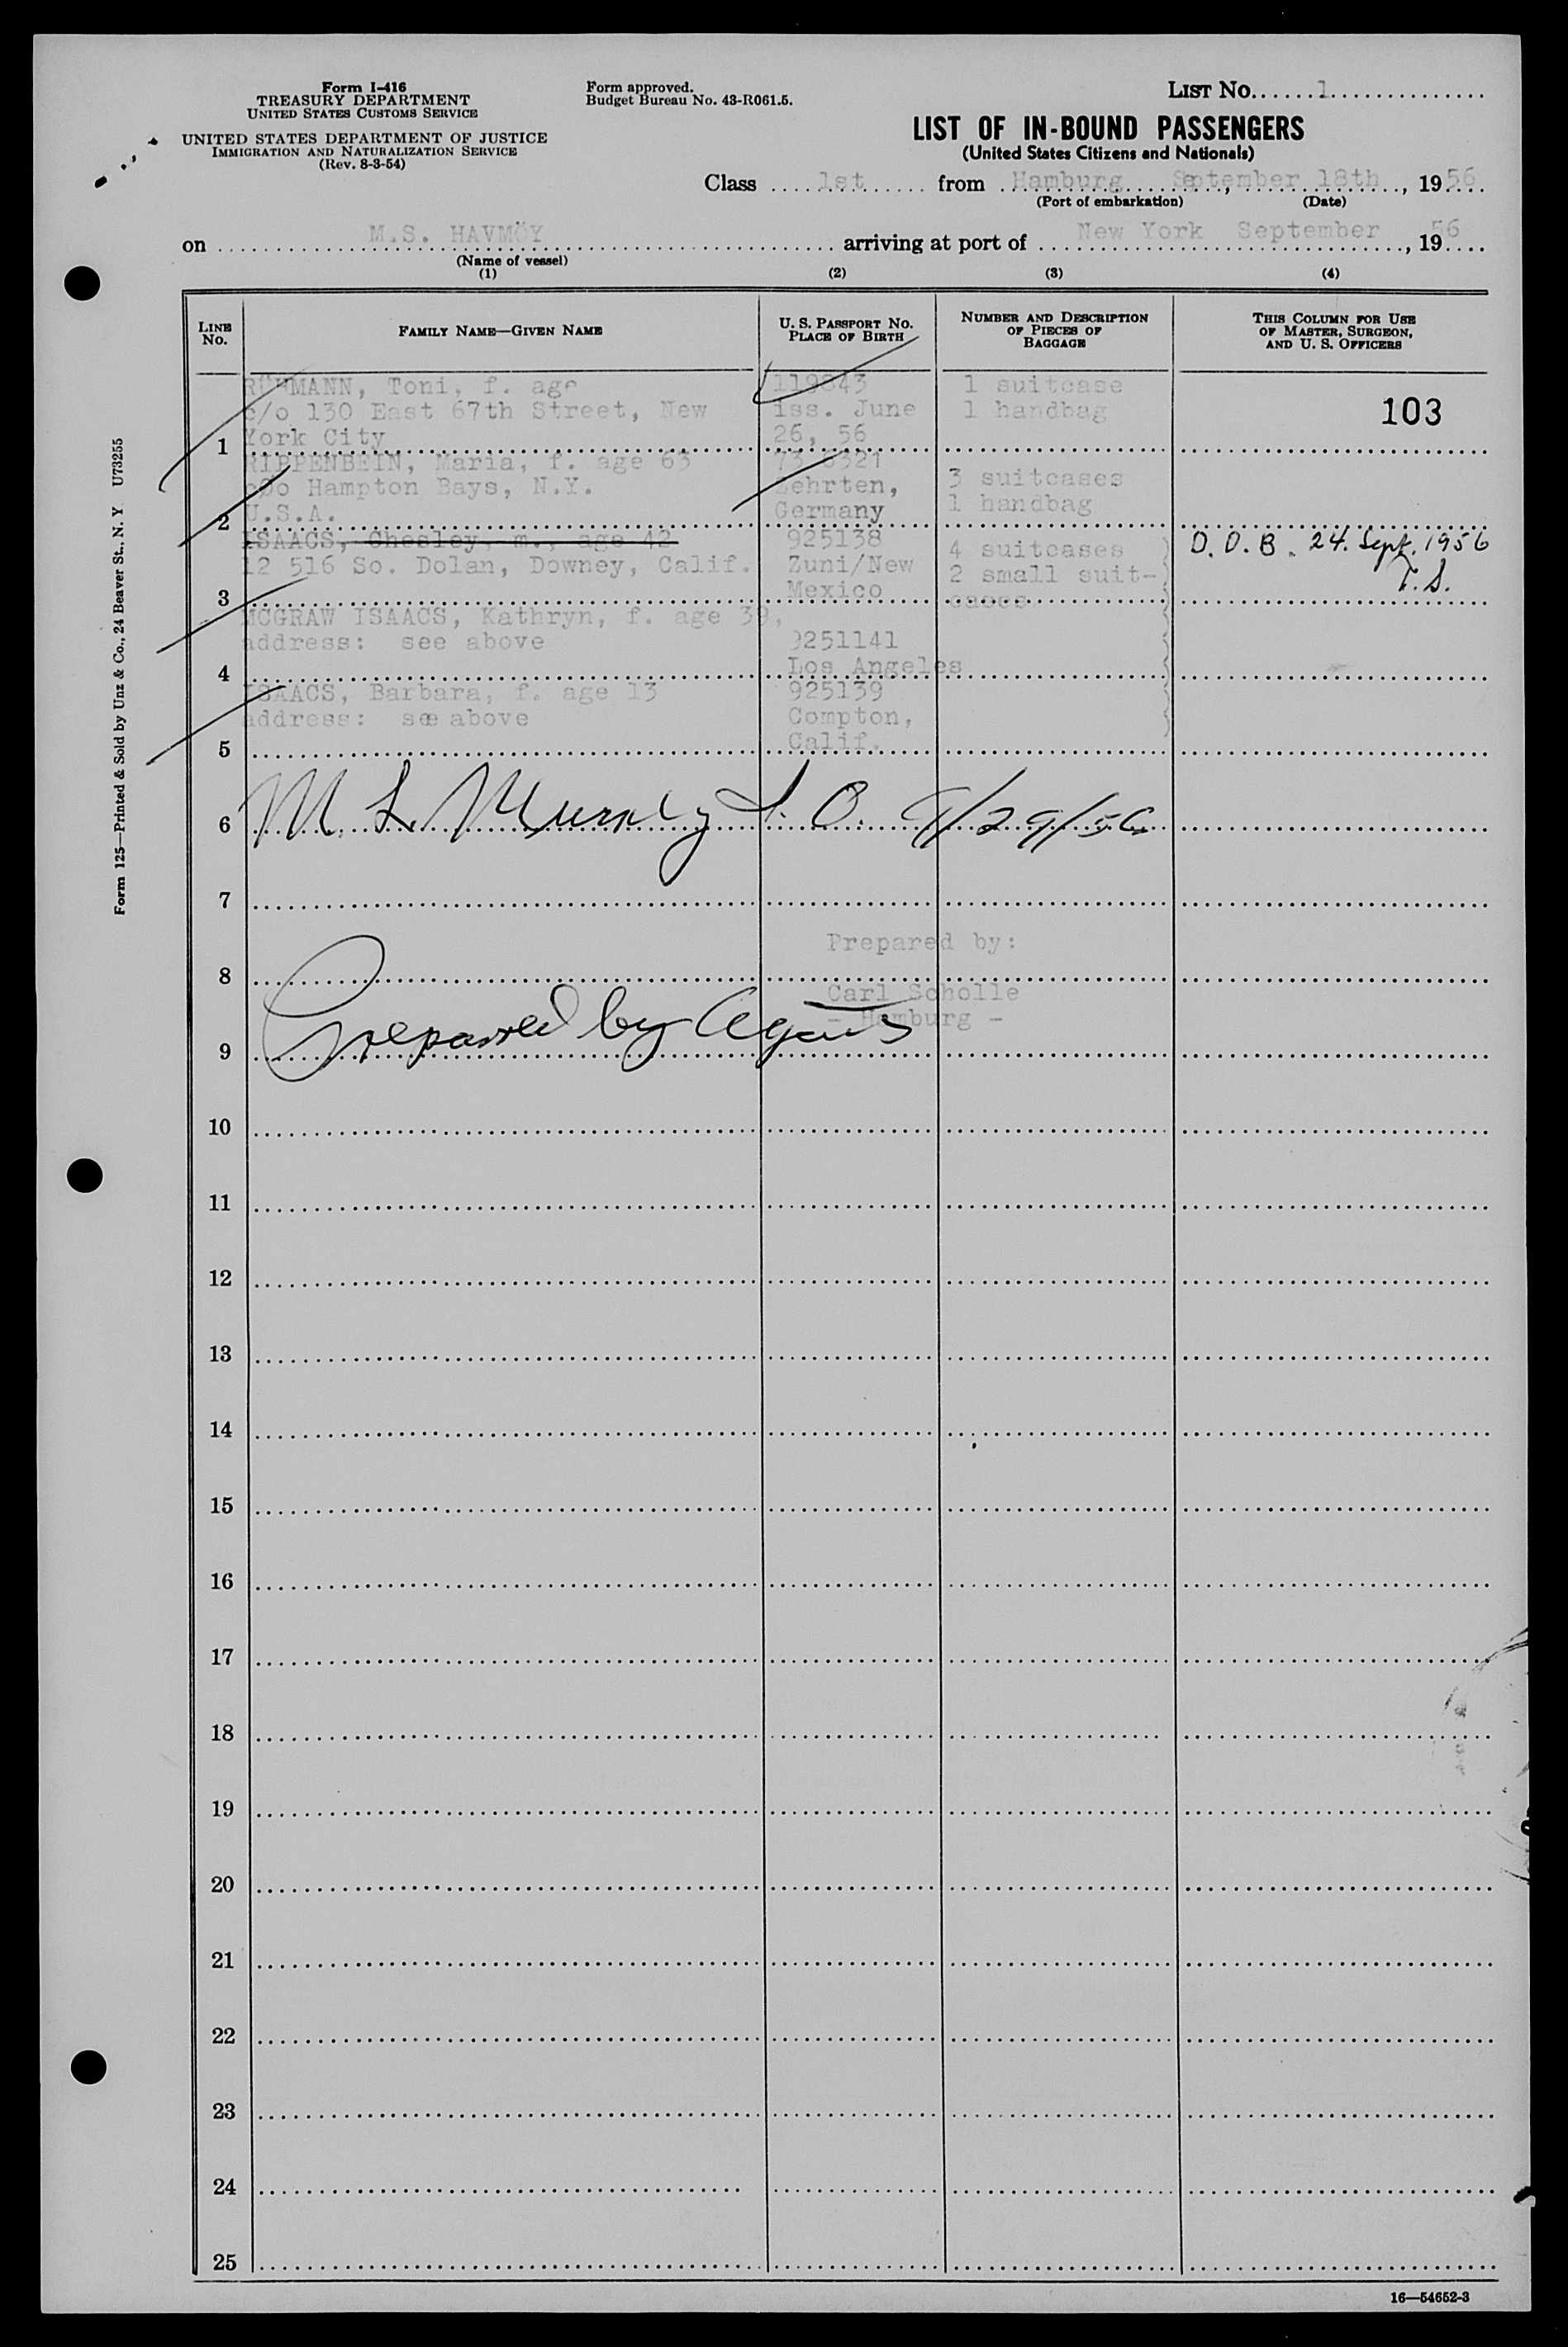 Form I-416
TREASURY DEPARTMENT
UNITED STATES CUSTOMS SERVICE
UNITED STATES DEPARTMENT OF JUSTICE
IMMIGRATION AND NATURALIZATION SERVICE
(Rev. 8-3-54)
Form approved.
Budget Bureau No. 43-R061.5.
LIST No. 1
LIST OF IN-BOUND PASSENGERS
(United States Citizens and Nationals)
Class 1st from Hamburg, September 18th, 1956
(Port of embarkation) (Date)
on M.S. HAVMÖY arriving at port of New York September, 1956
(Name of vessel)
(1) (2) (3) (4)
LINE No.
FAMILY NAME—GIVEN NAME
U. S. PASSPORT NO. PLACE OF BIRTH
NUMBER AND DESCRIPTION OF PIECES OF BAGGAGE
THIS COLUMN FOR USE OF MASTER, SURGEON, AND U. S. OFFICERS
RÜHMANN, Toni, f. age 119843 1 suitcase
c/o 130 East 67th Street, New iss. June 1 handbag 103
1 York City 26, 56
RIPPENBEIN, Maria, f. age 63
c/o Hampton Bays, N.Y. Lehrten, 3 suitcases
2 U.S.A. Germany 1 handbag
ISAACS, Chesley, m., age 42 925138 4 suitcases O.O.B. 24. Sept. 1956
12 516 So. Dolan, Downey, Calif. Zuni/New 2 small suit- T.S.
3 Mexico cases
MCGRAW ISAACS, Kathryn, f. age 39,
address: see above 9251141
4 Los Angeles
ISAACS, Barbara, f. age 13 925139
address: see above Compton,
5 Calif.
6 M. L. Murphy I. O. 9/29/56
7
Prepared by:
8
Carl Scholle
- Hamburg -
9 Prepared by Agents
10
11
12
13
14
15
16
17
18
19
20
21
22
23
24
25
16—54652-3
Form 125—Printed & Sold by Unz & Co., 24 Beaver St., N. Y U73255